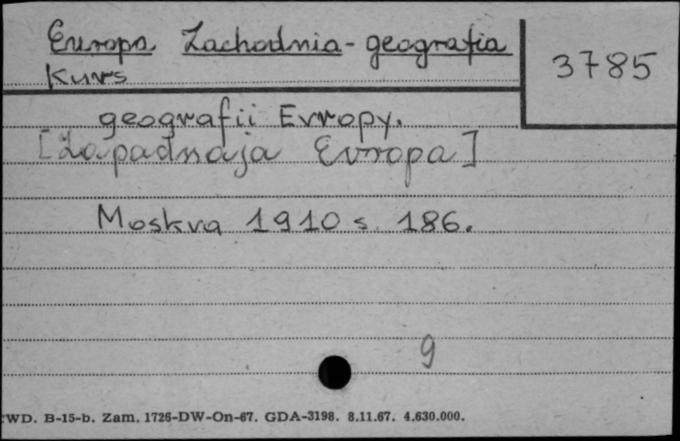 Europa Zachodnia - geografia
3785
Kurs
geografii Evropy.
[Zapadnaja Evropa]
Moskva 1910 s. 186.
9
WD. B-15-b. Zam. 1726-DW-On-67. GDA-3198. 8.11.67. 4.630.000.